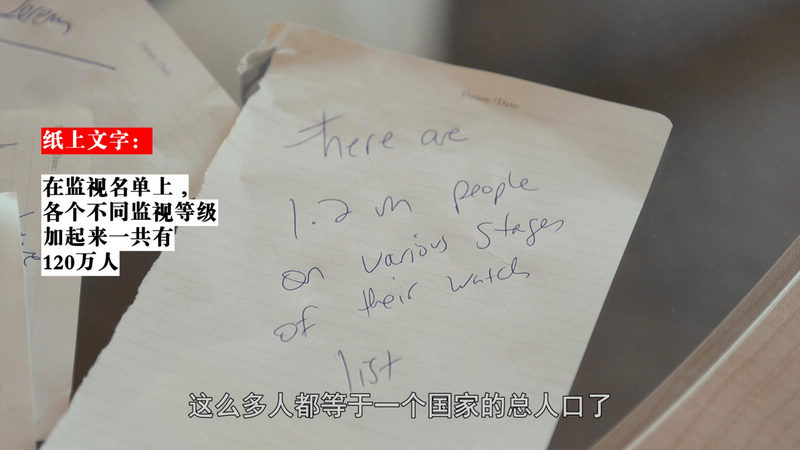 Jeremy
Datum/Date:
Datum / Date:
纸上文字：
在监视名单上，
各个不同监视等级
加起来一共有
120万人
There are
1.2 m people
on various stages
of their watch
list
这么多人都等于一个国家的总人口了